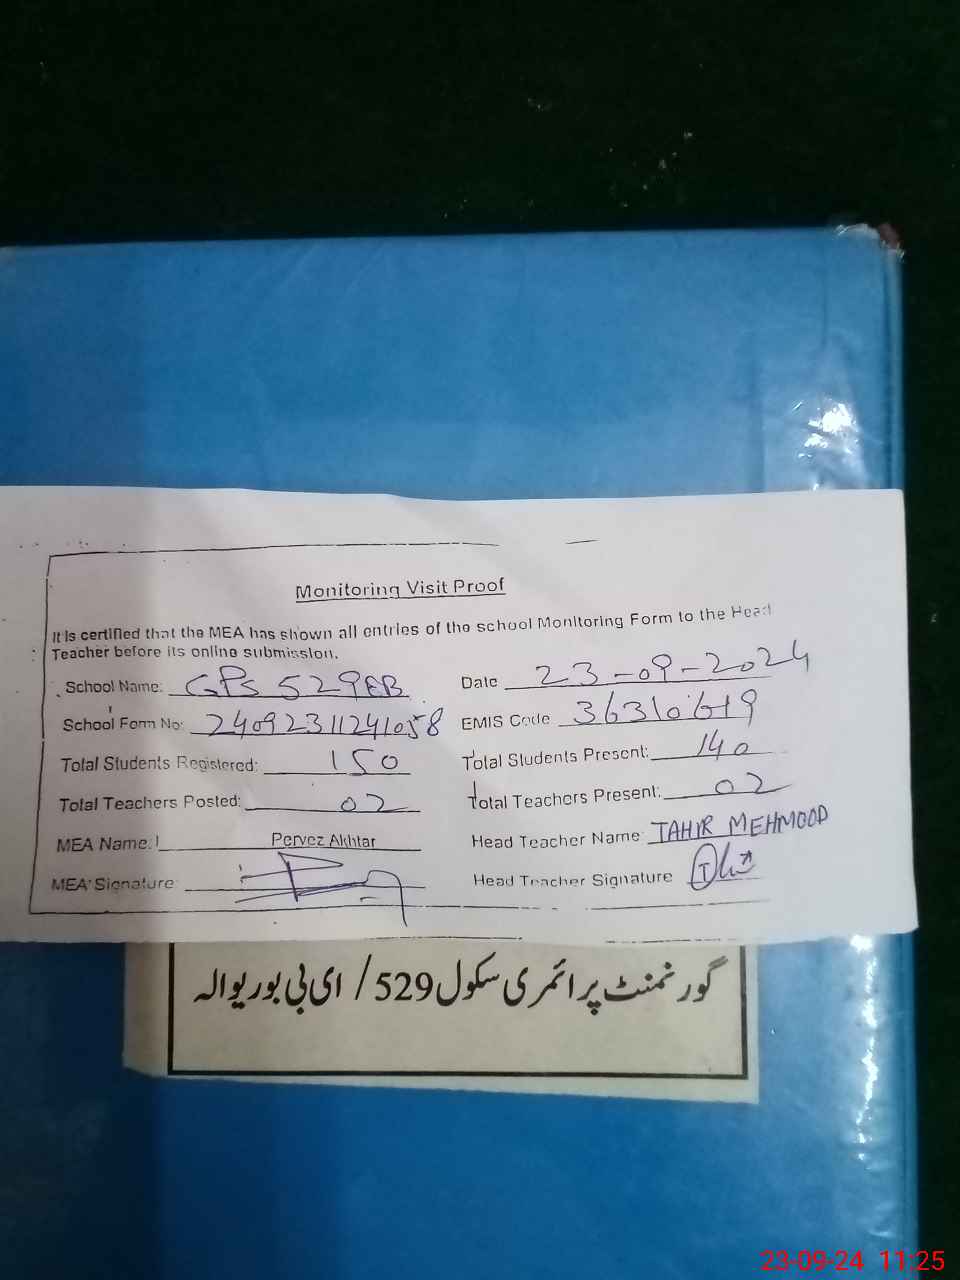 Monitoring Visit Proof
It is certified that the MEA has shown all entries of the school Monitoring Form to the Head
Teacher before its online submission.
School Name: GPS 529EB Date 23-09-2024
School Form No: 24092311241058 EMIS Code 36310619
Total Students Registered: 150 Total Students Present: 140
Total Teachers Posted: 02 Total Teachers Present: 02
MEA Name: Pervez Akhtar Head Teacher Name: TAHIR MEHMOOD
MEA Signature: Head Teacher Signature
گورنمنٹ پرائمری سکول 529/ ای بی بوریوالہ
23-09-24 11:25